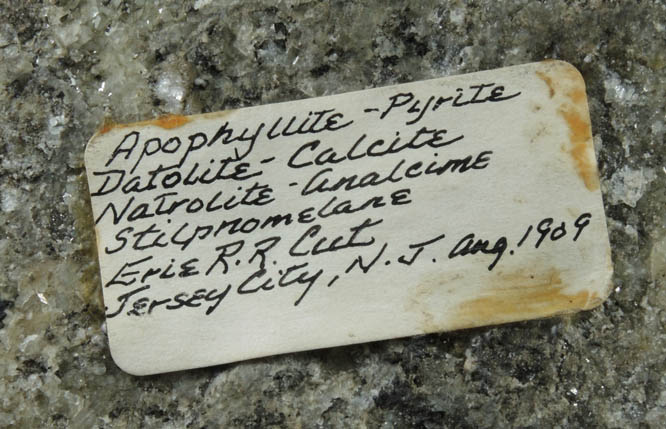 Apophyllite - Pyrite
Datolite - Calcite
Natrolite - Analcime
Stilpnomelane
Erie R.R. Cut
Jersey City, N.J. Aug. 1909